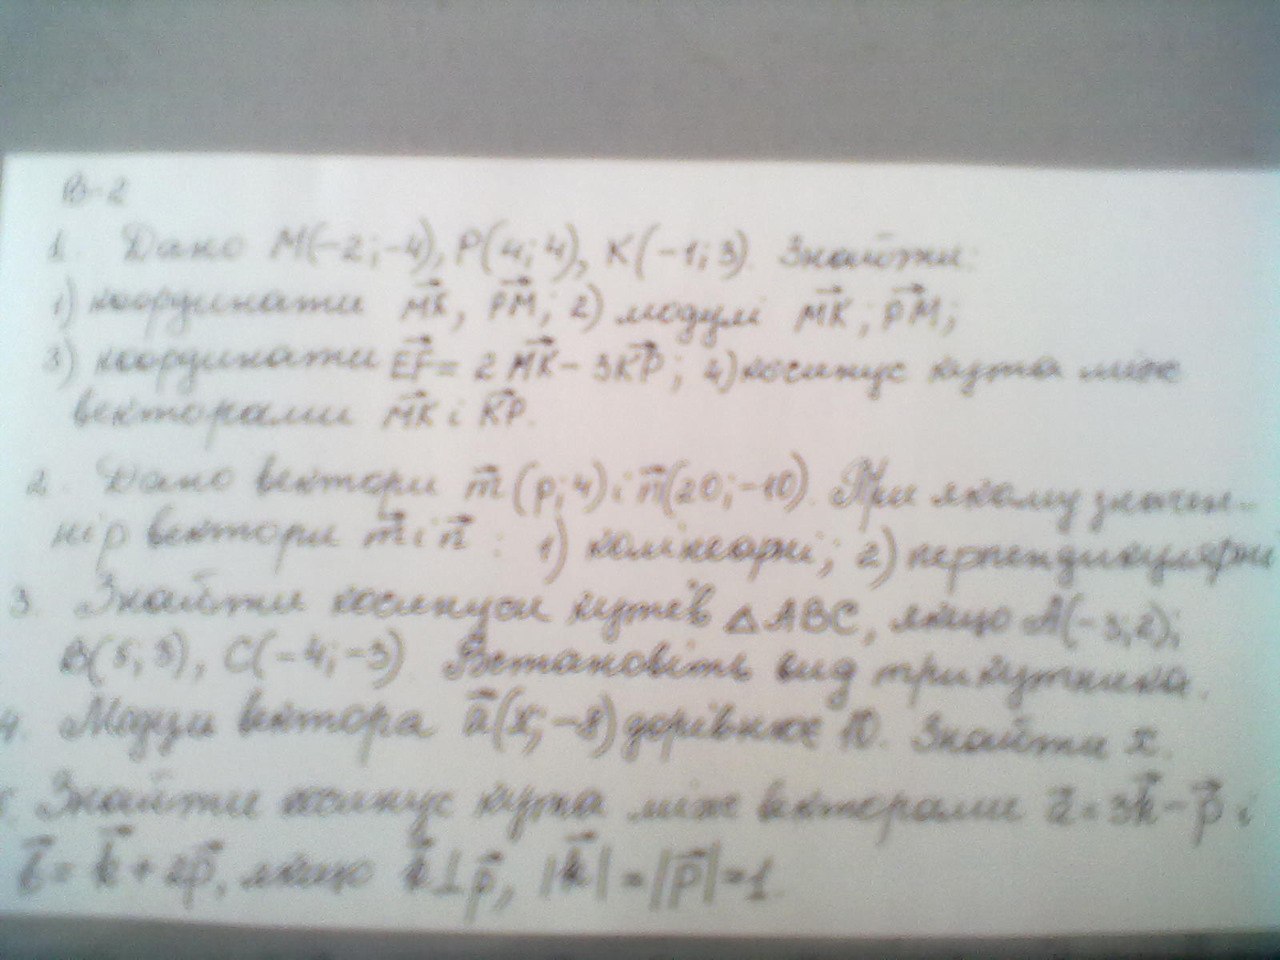 В-2
1. Дано M(-2; -4), P(4; 4), K(-1; 3). Знайти:
1) координати MK, PM; 2) модулі MK; PM;
3) координати EF = 2MK - 3KP; 4) косинус кута між
векторами MK і KP.
2. Дано вектори m(p; 4) і n(20; -10). При якому значен-
ні p вектори m і n: 1) колінеарні; 2) перпендикулярні
3. Знайти косинуси кутів △ABC, якщо A(-3; 2);
C(-4; -3). Встановіть вид трикутника.
4. Модуль вектора a(x; -8) дорівнює 10. Знайти x.
Знайти косинус кута між векторами a = 3k - p і
b = k + 2p, якщо k⊥p, |k| = |p| = 1